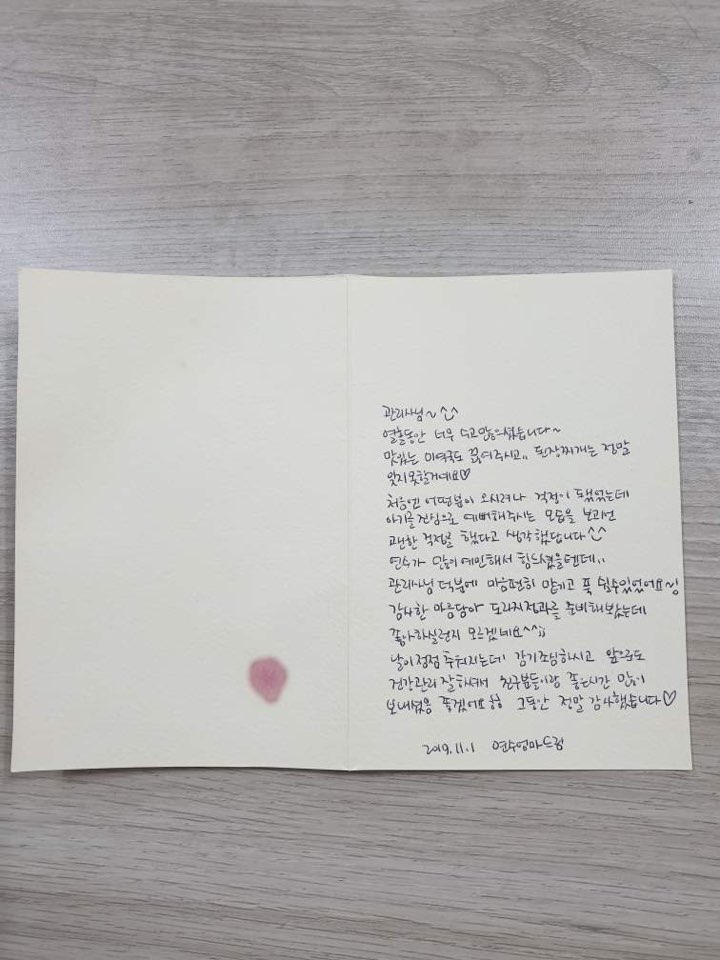 관리사님~ ^^
열흘동안 너무 수고많으셨습니다~
맛있는 미역국도 끓여주시고,, 된장찌개는 정말
잊지못할거예요♡
처음엔 어떤분이 오시려나 걱정이 됐었는데
아기를 진심으로 예뻐해주시는 모습을 보고선
괜한 걱정을 했다고 생각했답니다^^
연수가 많이 예민해서 힘드셨을텐데,,
관리사님 덕분에 마음편히 맡기고 푹 쉴수있었어요~!
감사한 마음담아 도라지정과를 준비해봤는데
좋아하실런지 모르겠네요^^;;
날이 점점 추워지는데 감기조심하시고 앞으로도
건강관리 잘하셔서 친구분들이랑 좋은시간 많이
보내셨음 좋겠어요 그동안 정말 감사했습니다♡
2019.11.1 연수엄마드림